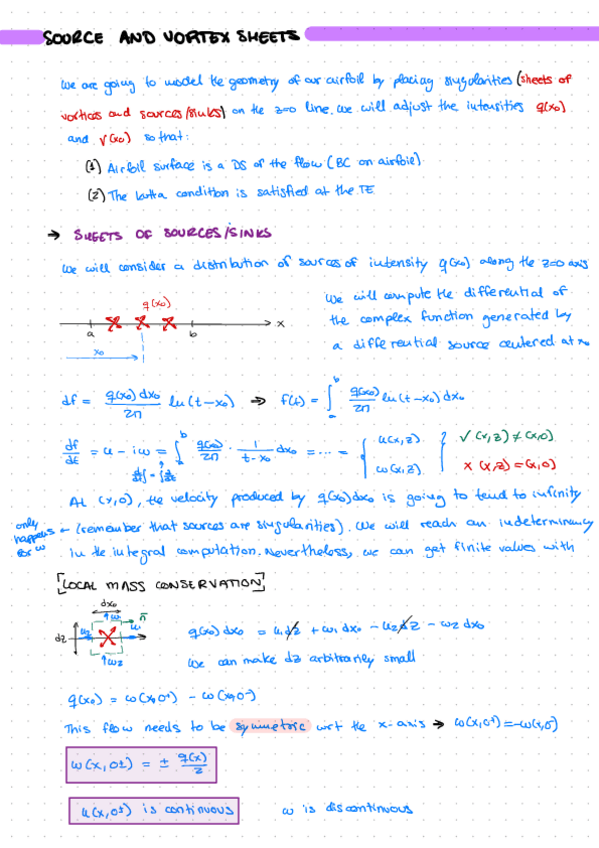 SOURCE AND VORTEX SHEETS
We are going to model the geometry of our airfoil by placing singularities (sheets of
vortices and sources/sinks) on the z=0 line. We will adjust the intensities q(x₀)
and γ(x₀) so that:
(1) Airfoil surface is a DS of the flow (BC on airfoil)
(2) The kutta condition is satisfied at the TE
→ SHEETS OF SOURCES/SINKS
We will consider a distribution of sources of intensity q(x₀) along the z=0 axis
q(x₀)
a b x
x₀
We will compute the differential of
the complex function generated by
a differential source centered at x₀
df = q(x₀)dx₀/2π ln(t-x₀) → f(t) = ∫ₐᵇ q(x₀)/2π ln(t-x₀)dx₀
df/dt = u - iw = ∫ₐᵇ q(x₀)/2π · 1/(t-x₀) dx₀ = ... = { u(x,z) } √ (x,z) ≠ (x,0)
{ w(x,z) } x (x,z) = (x,0)
At (x,0), the velocity produced by q(x₀)dx₀ is going to tend to infinity
only happens for w ← (remember that sources are singularities). We will reach an indeterminancy
in the integral computation. Nevertheless, we can get finite values with
[LOCAL MASS CONSERVATION]
dx₀
w₁ n̄
dz u₂ u₁
w₂
q(x₀)dx₀ = u₁dz + w₁dx₀ - u₂dz - w₂dx₀
We can make dz arbitrarily small
q(x₀) = w(x,0⁺) - w(x,0⁻)
This flow needs to be symmetric wrt the x-axis → w(x,0⁺) = -w(x,0⁻)
w(x,0±) = ± q(x)/2
u(x,0±) is continuous w is discontinuous